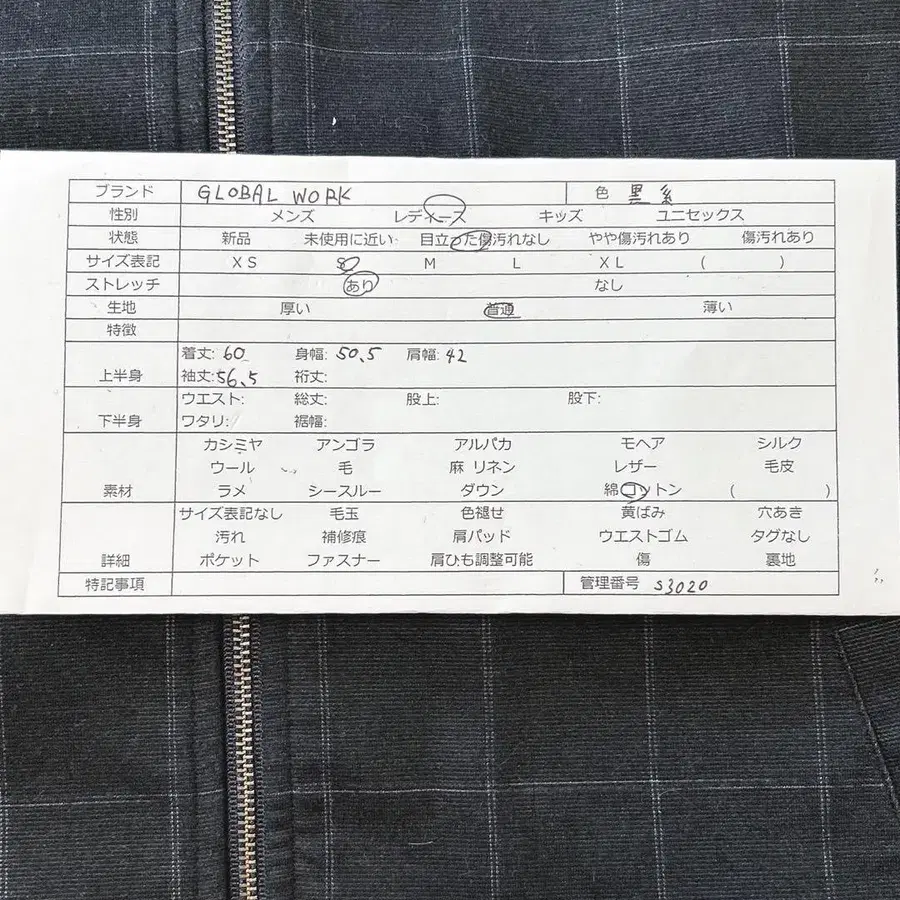 ブランド GLOBAL WORK 色 黒系
性別 メンズ レディース キッズ ユニセックス
状態 新品 未使用に近い 目立った傷汚れなし やや傷汚れあり 傷汚れあり
サイズ表記 XS S M L XL ( )
ストレッチ あり なし
生地 厚い 普通 薄い
特徴
着丈: 60 身幅: 50.5 肩幅: 42
上半身 袖丈: 56.5 裄丈:
ウエスト: 総丈: 股上: 股下:
下半身 ワタリ: 裾幅:
カシミヤ アンゴラ アルパカ モヘア シルク
ウール 毛 麻 リネン レザー 毛皮
素材 ラメ シースルー ダウン 綿 コットン ( )
サイズ表記なし 毛玉 色褪せ 黄ばみ 穴あき
汚れ 補修痕 肩パッド ウエストゴム タグなし
詳細 ポケット ファスナー 肩ひも調整可能 傷 裏地
特記事項 管理番号 S3020